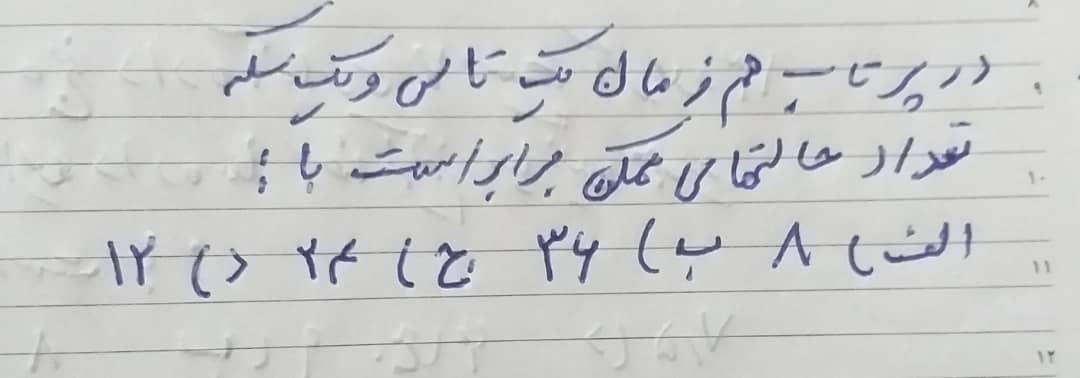 در پرتاب هم زمان یک تاس و یک سکه
تعداد حالتهای ممکن برابر است با :
الف) ۸ ب) ۳۶ ج) ۲۴ د) ۱۲